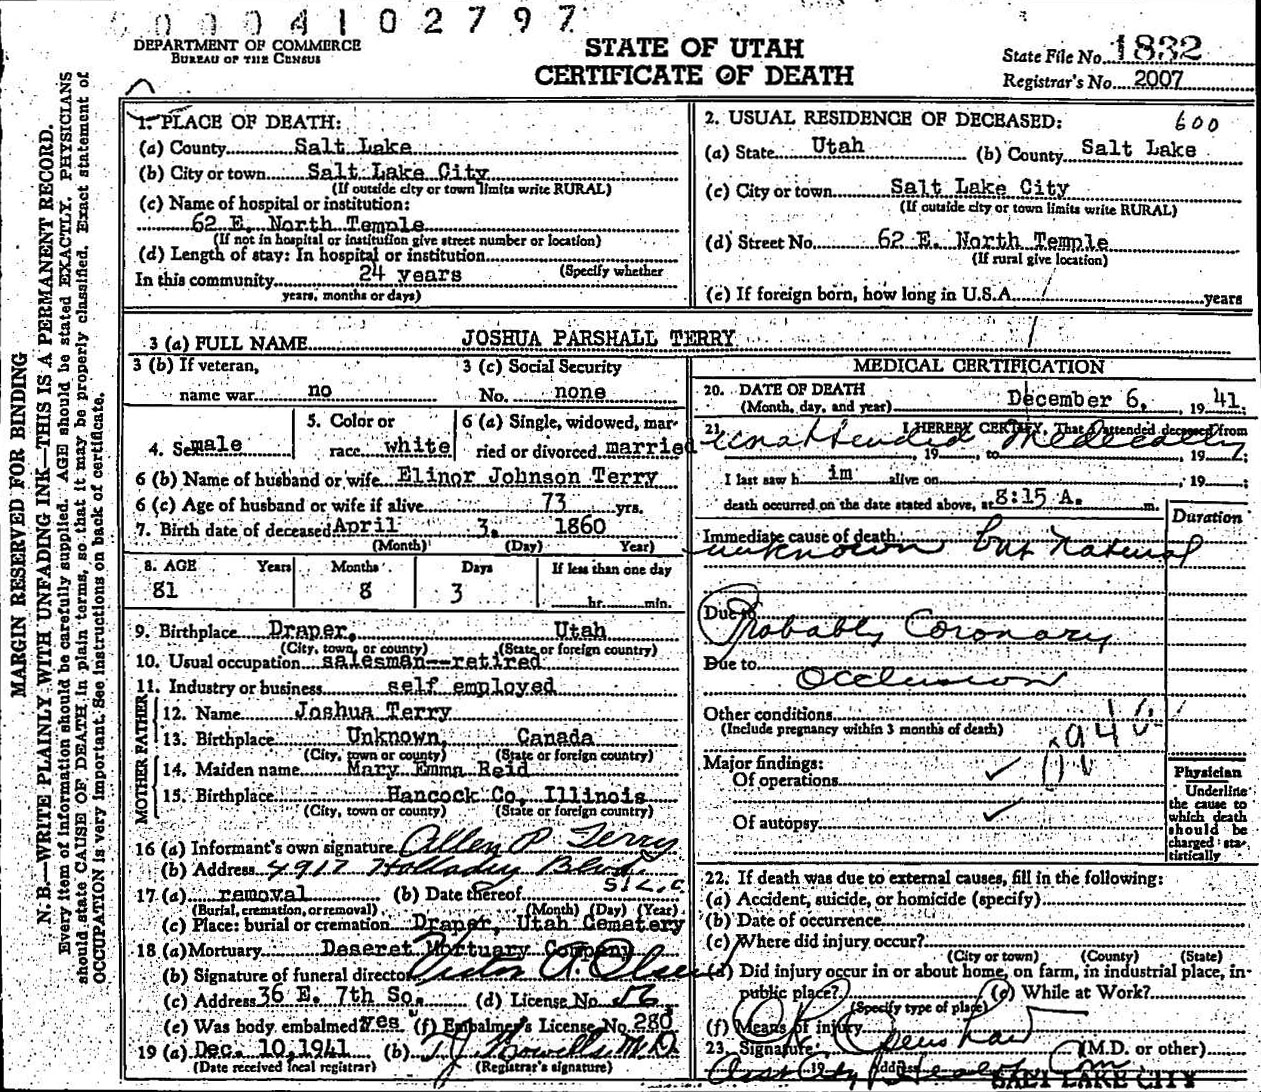 0004102797
DEPARTMENT OF COMMERCE
BUREAU OF THE CENSUS
STATE OF UTAH
CERTIFICATE OF DEATH
State File No. 1832
Registrar's No. 2007
MARGIN RESERVED FOR BINDING
N. B.—WRITE PLAINLY WITH UNFADING INK—THIS IS A PERMANENT RECORD.
Every item of information should be carefully supplied. AGE should be stated EXACTLY. PHYSICIANS
should state CAUSE OF DEATH in plain terms, so that it may be properly classified. Exact statement of
OCCUPATION is very important. See instructions on back of certificate.
1. PLACE OF DEATH:
(a) County Salt Lake
(b) City or town Salt Lake City
(If outside city or town limits write RURAL)
(c) Name of hospital or institution:
62 E. North Temple
(If not in hospital or institution give street number or location)
(d) Length of stay: In hospital or institution
(Specify whether
In this community 24 years
years, months or days)
2. USUAL RESIDENCE OF DECEASED: 600
(a) State Utah (b) County Salt Lake
(c) City or town Salt Lake City
(If outside city or town limits write RURAL)
(d) Street No. 62 E. North Temple
(If rural give location)
(e) If foreign born, how long in U.S.A. years
3 (a) FULL NAME JOSHUA PARSHALL TERRY
3 (b) If veteran,
name war no
3 (c) Social Security
No. none
4. Sex male
5. Color or
race white
6 (a) Single, widowed, mar-
ried or divorced married
6 (b) Name of husband or wife Elinor Johnson Terry
6 (c) Age of husband or wife if alive 73 yrs.
7. Birth date of deceased April 3, 1860
(Month) (Day) Year)
8. AGE Years Months Days If less than one day
81 8 3 hr. min.
9. Birthplace Draper, Utah
(City, town, or county) (State or foreign country)
10. Usual occupation salesman--retired
11. Industry or business self employed
FATHER
12. Name Joshua Terry
13. Birthplace Unknown, Canada
(City, town or county) (State or foreign country)
MOTHER
14. Maiden name Mary Emma Reid
15. Birthplace Hancock Co, Illinois
(City, town or county) (State or foreign country)
16 (a) Informant's own signature Allen P. Terry
(b) Address 4917 Holladay Blvd.
S.L.C.
17 (a) removal (b) Date thereof
(Burial, cremation, or removal) (Month) (Day) (Year)
(c) Place: burial or cremation Draper, Utah Cemetery
18 (a) Mortuary Deseret Mortuary Company
(b) Signature of funeral director Victor A. Olsen
(c) Address 36 E. 7th So. (d) License No.
(e) Was body embalmed? yes (f) Embalmer's License No. 280
19 (a) Dec. 10, 1941 (b) M.D.
(Date received local registrar) (Registrar's signature)
MEDICAL CERTIFICATION
20. DATE OF DEATH
(Month, day, and year) December 6, 19 41.
21. I HEREBY CERTIFY, That I attended deceased from
unattended medically
, 19 , to , 19 ;
I last saw h im alive on , 19 ;
death occurred on the date stated above, at 8:15 A. m.
Duration
Immediate cause of death
unknown but natural
Due to
Probably Coronary
Due to
Occlusion
Other conditions
(Include pregnancy within 3 months of death)
Major findings:
Of operations
Of autopsy
Physician
Underline
the cause to
which death
should be
charged sta-
tistically
22. If death was due to external causes, fill in the following:
(a) Accident, suicide, or homicide (specify)
(b) Date of occurrence
(c) Where did injury occur?
(City or town) (County) (State)
(d) Did injury occur in or about home, on farm, in industrial place, in
public place?
(Specify type of place)
(e) While at Work?
(f) Means of injury
23. Signature (M.D. or other)
Address
SALT LAKE CITY